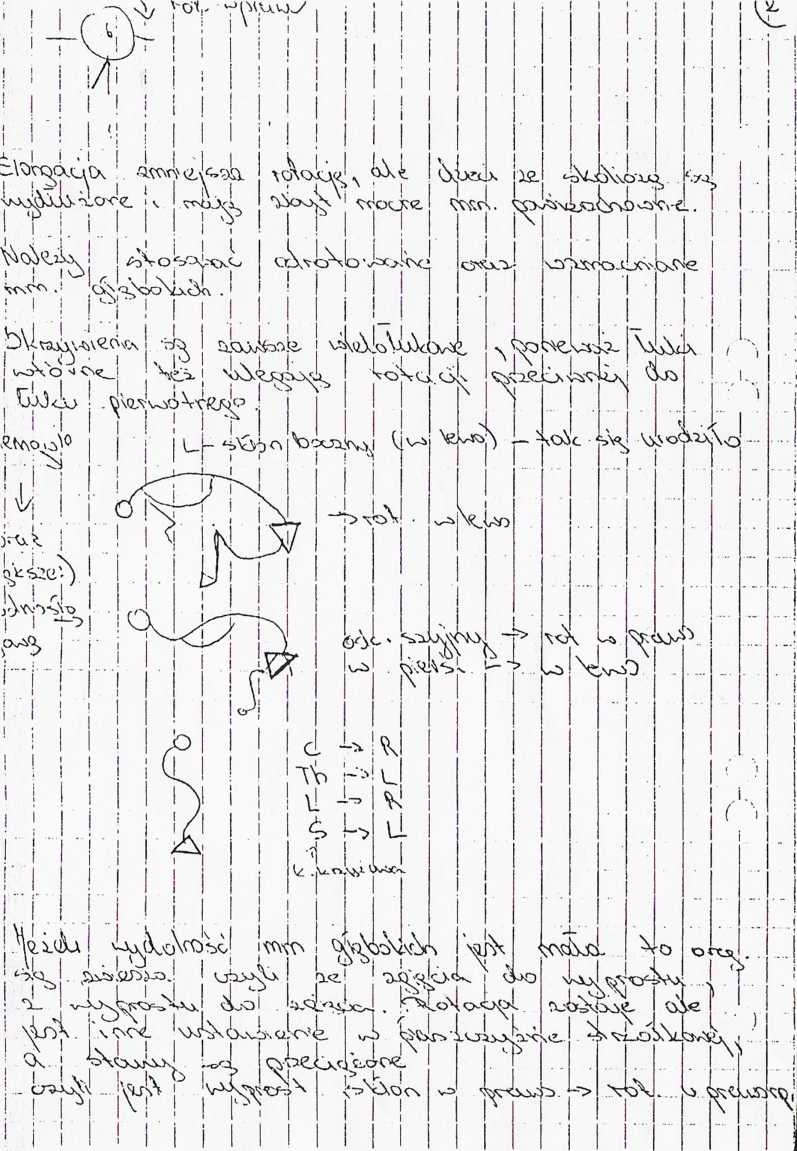 rot. wprawo
2
6
Elongacja zmniejsza rotację, ale dzieci ze skoliozą są
wydłużone i mają zbyt mocne mm. powierzchowne.
Należy stosować odrotowanie oraz wzmacnianie
mm. głębokich.
Skrzywienia są zawsze wielołukowe, ponieważ łuki
wtórne też ulegają rotacji przeciwnej do
łuku pierwotnego.
L - skłon boczny (w lewo) - tak się urodziło
→ rot. w lewo
odc. szyjny → rot w prawo
w piersi → w lewo
C → R
Th → L
L → R
S → L
k. krzyżowa
Jeżeli wydolność mm głębokich jest mała to org.
czyli ze zgięcia do wyprostu,
z wyprostu do zgięcia. Rotacja zostaje ale
jest inne ustawienie w płaszczyźnie strzałkowej,
a stawy są przeciążone
czyli jest wyprost i skłon w prawo → rot. w